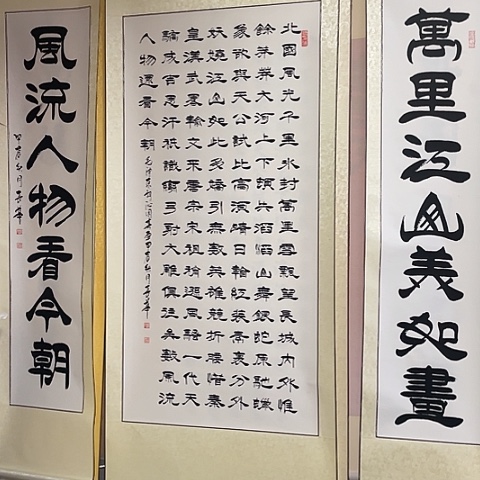 萬里江山美如畫
北國風光千里冰封萬里雪飄望長城內外惟
餘莽莽大河上下頓失滔滔山舞銀蛇原馳蠟
象欲與天公試比高須晴日看紅裝素裹分外
妖嬈江山如此多嬌引無數英雄競折腰惜秦
皇漢武略輸文采唐宗宋祖稍遜風騷一代天
驕成吉思汗祇識彎弓射大雕俱往矣數風流
人物還看今朝 毛澤東詞沁園春雪
風流人物看今朝